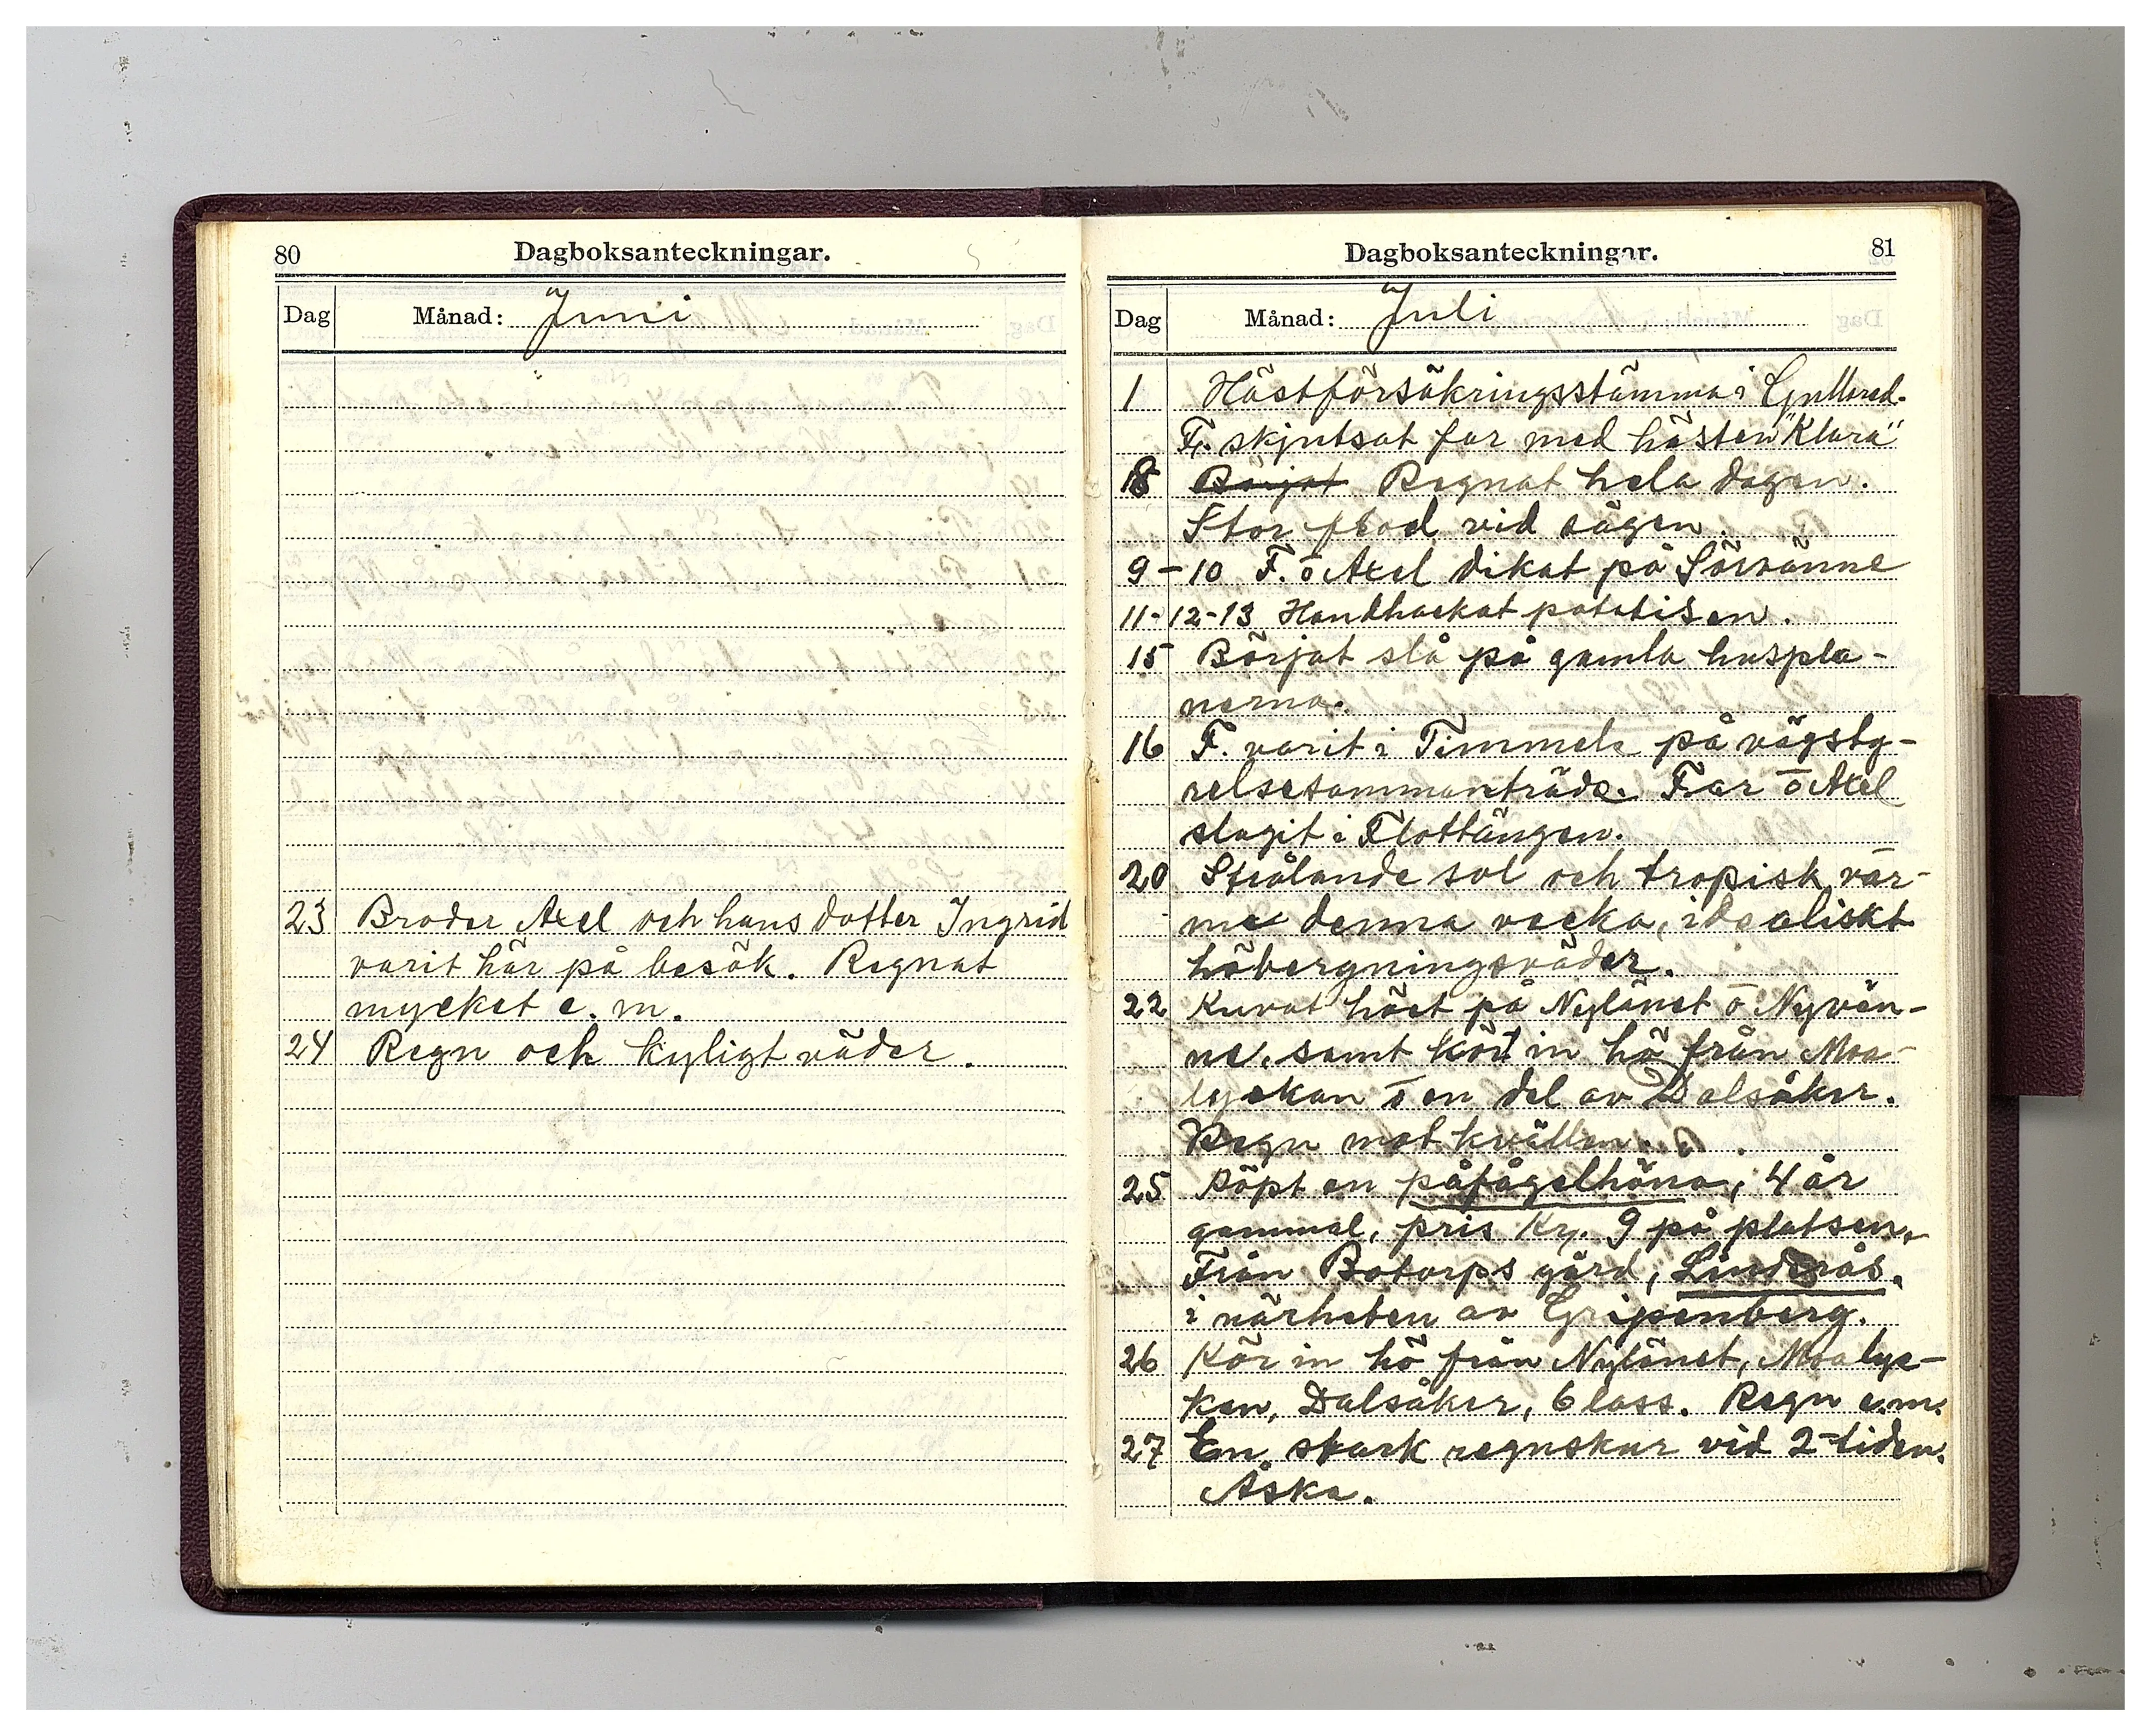 80
Dagboksanteckningar.
Dag Månad: Juni
23 Broder Axel och hans dotter Ingrid
varit här på besök. Regnat
mycket e. m.
24 Regn och kyligt väder.
Dagboksanteckningar.
81
Dag Månad: Juli
1 Hästförsäkringsstämma i Gullered.
F. skjutsat far med hästen "Klara"
8 Börjat Regnat hela dagen.
Stor flod vid sågen
9-10 F. o Axel dikat på Sörvänne
11-12-13 Handhackat potatisen.
15 Börjat slå på gamla huspla-
nerna.
16 F. varit i Timmele på vägsty-
relsesammanträde. Far o Axel
slagit i Flottängen.
20 Strålande sol och tropisk vär-
me denna vecka, idealiskt
höbergningsväder.
22 Kuvat höet på Nylänet o Nyvän-
ne, samt kört in hö från Moa-
lyckan o en del av Dalsåker.
Regn mot kvällen.
25 Köpt en påfågelhöna, 4 år
gammal, pris Kr. 9 på platsen,
Från Botorps gård, Linderås.
i närheten av Gripenberg.
26 Kör in hö från Nylänet, Moalyc-
kan, Dalsåker, 6 lass. Regn e.m.
27 En stark regnskur vid 2-tiden.
Åska.